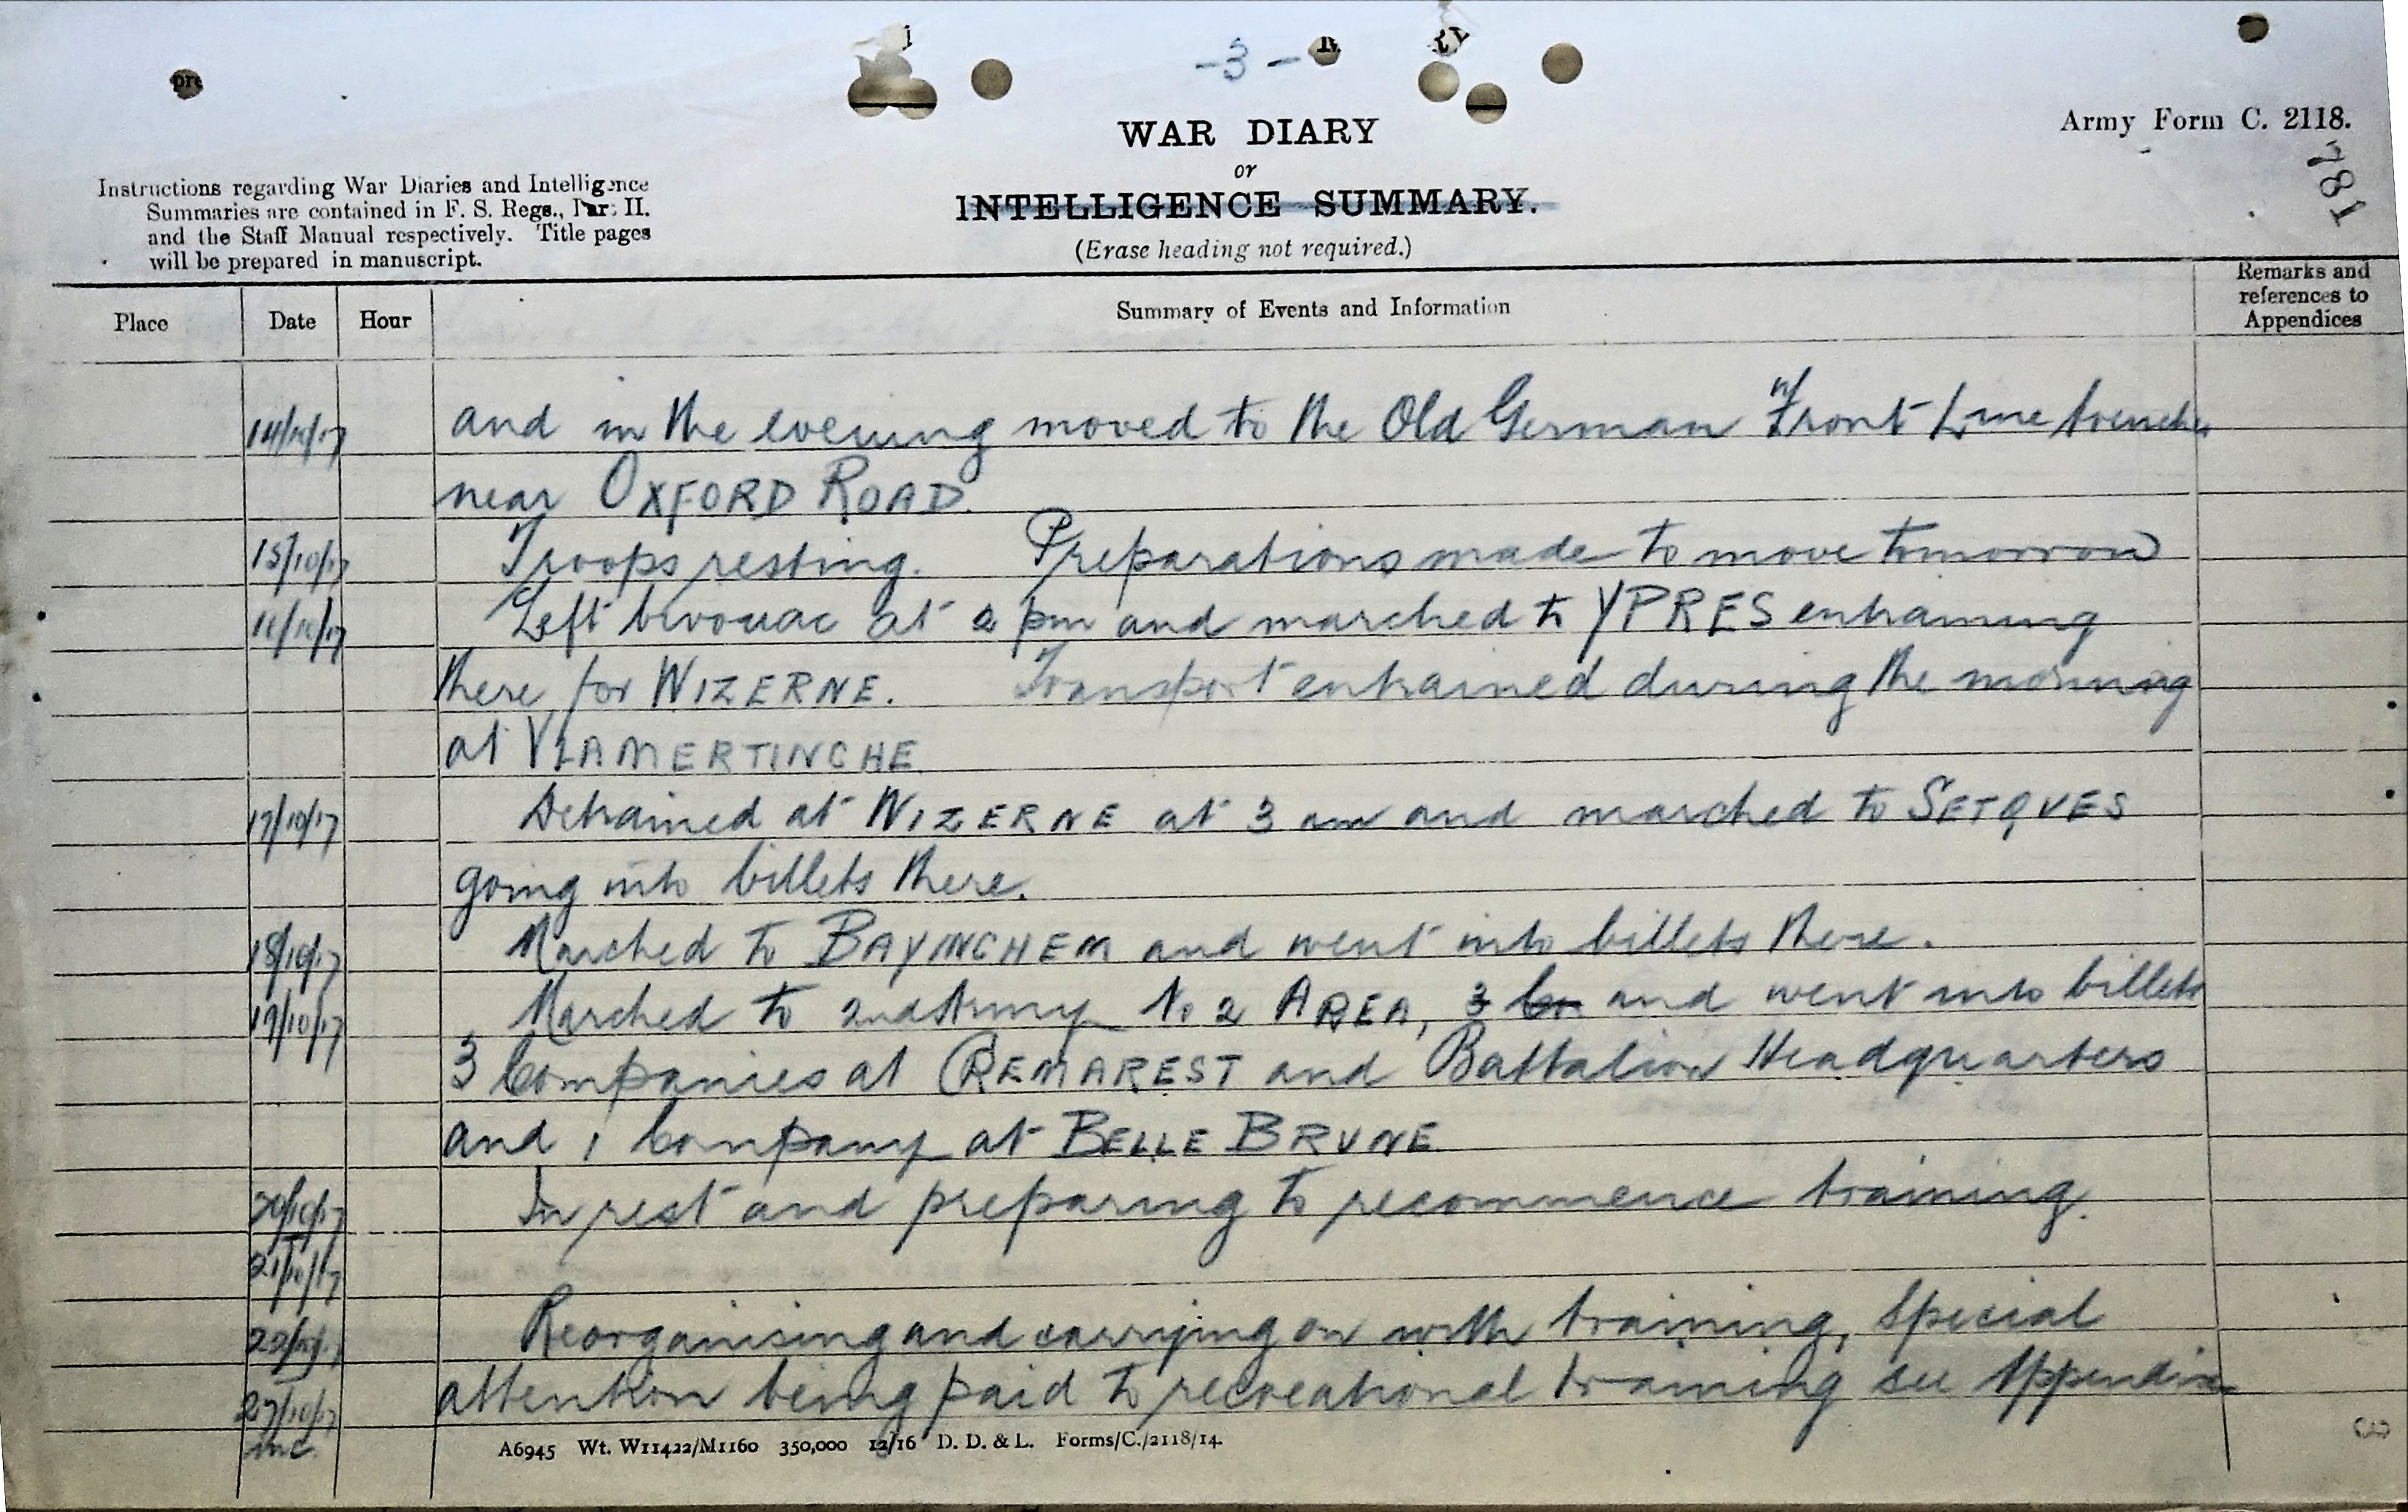 -3-
WAR DIARY
or
INTELLIGENCE SUMMARY.
(Erase heading not required.)
Army Form C. 2118.
781
Instructions regarding War Diaries and Intelligence
Summaries are contained in F. S. Regs., Part II.
and the Staff Manual respectively. Title pages
will be prepared in manuscript.
Place Date Hour Summary of Events and Information Remarks and references to Appendices
14/10/17 and in the evening moved to the Old German Front Line trenches
near OXFORD ROAD.
15/10/17 Troops resting. Preparations made to move tomorrow
16/10/17 Left bivouac at 2 pm and marched to YPRES entraining
there for WIZERNE. Transport entrained during the morning
at VLAMERTINGHE
17/10/17 Detrained at WIZERNE at 3 am and marched to SETQUES
going into billets there.
18/10/17 Marched to BAYINGHEM and went into billets there.
19/10/17 Marched to 2nd Army No 2 AREA, 3 Co and went into billets
3 Companies at CREMAREST and Battalion Headquarters
and 1 Company at BELLE BRUNE
20/10/17 In rest and preparing to recommence training.
21/10/17
22/10/17 Reorganising and carrying on with training, special
27/10/17 attention being paid to recreational training see Appendix
inc.
A6945 Wt. W11422/M1160 350,000 12/16 D. D. & L. Forms/C./2118/14.